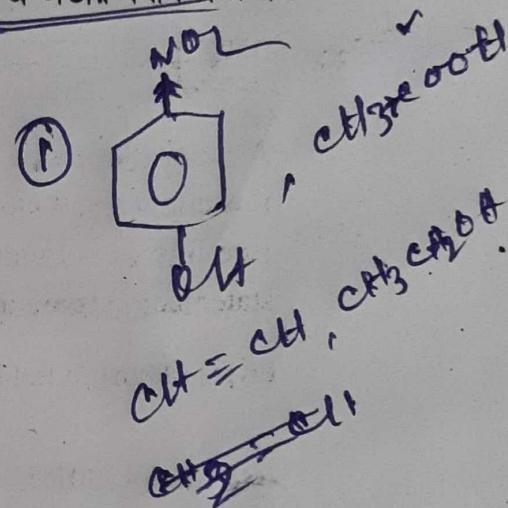 NO2
①
, CH3COOH
OH
CH≡CH, CH3CH2OH